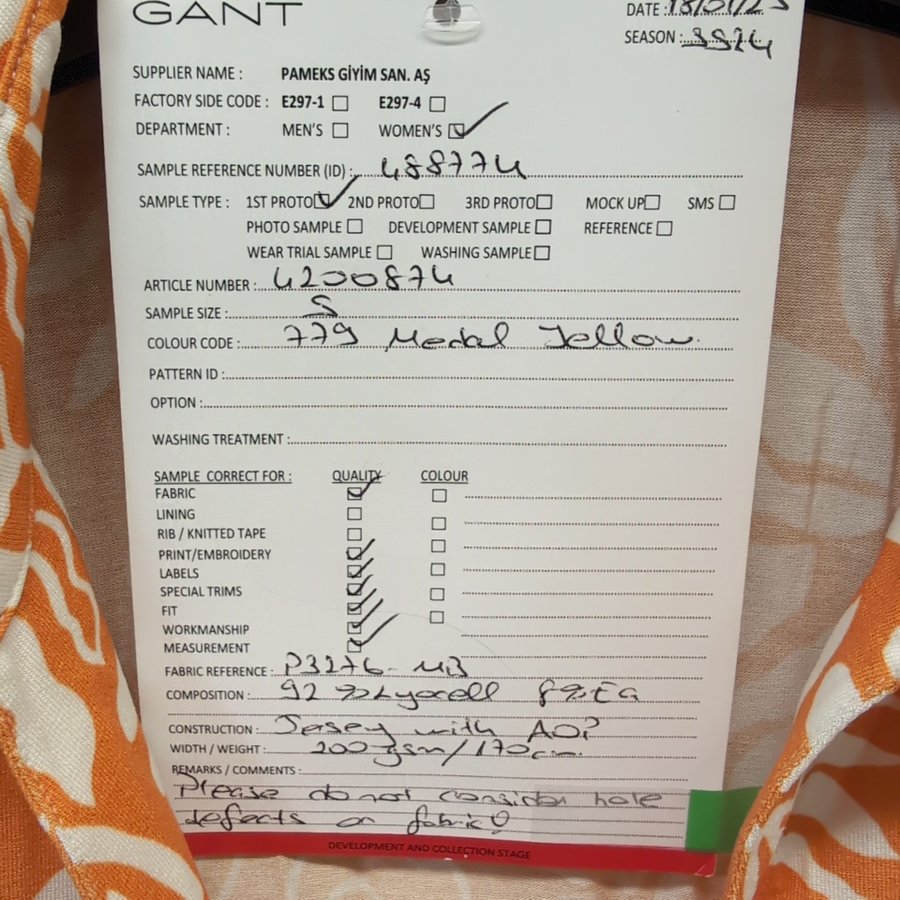 GANT
DATE :
SEASON : SS24
SUPPLIER NAME : PAMEKS GİYİM SAN. AŞ
FACTORY SIDE CODE : E297-1 E297-4
DEPARTMENT : MEN'S WOMEN'S
SAMPLE REFERENCE NUMBER (ID) : 488774
SAMPLE TYPE : 1ST PROTO 2ND PROTO 3RD PROTO MOCK UP SMS
PHOTO SAMPLE DEVELOPMENT SAMPLE REFERENCE
WEAR TRIAL SAMPLE WASHING SAMPLE
ARTICLE NUMBER : 4200874
SAMPLE SIZE : S
COLOUR CODE : 779 Medal Yellow
PATTERN ID :
OPTION :
WASHING TREATMENT :
SAMPLE CORRECT FOR : QUALITY COLOUR
FABRIC
LINING
RIB / KNITTED TAPE
PRINT/EMBROIDERY
LABELS
SPECIAL TRIMS
FIT
WORKMANSHIP
MEASUREMENT
FABRIC REFERENCE : P3276-MB
COMPOSITION : 92 % Lyocell 8% Ea
CONSTRUCTION : Jersey with AOP
WIDTH / WEIGHT : 200 gsm / 170cm
REMARKS / COMMENTS :
Please do not consider hole
defects on fabric!
DEVELOPMENT AND COLLECTION STAGE